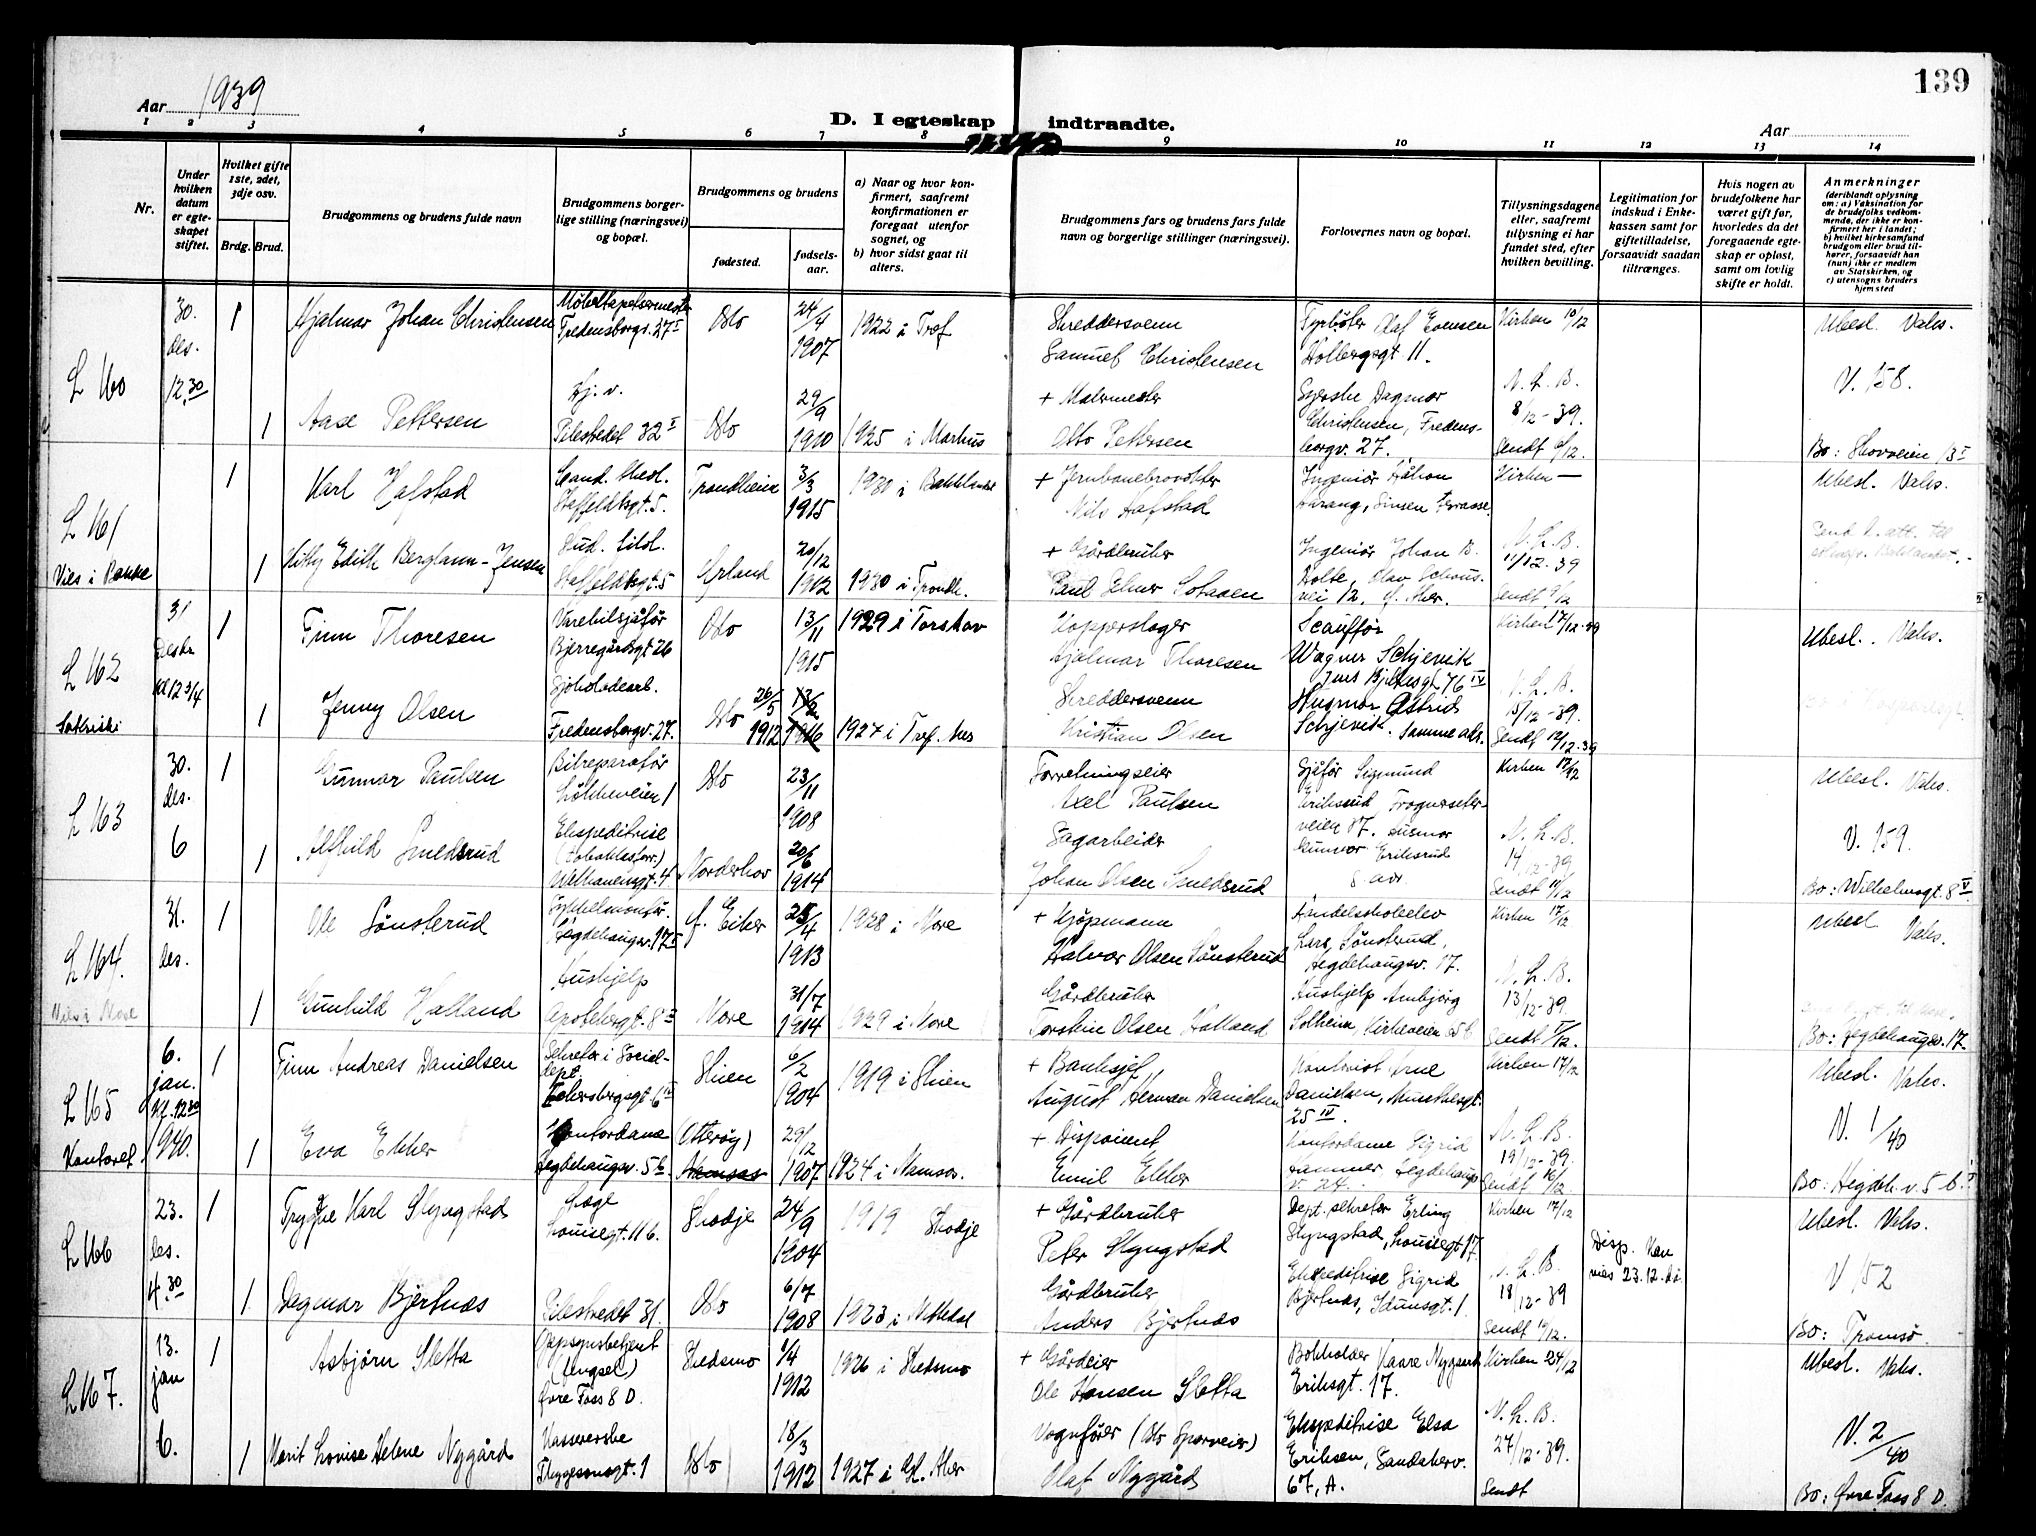 139
Aar 1939
D. I egteskap indtraadte.
Aar
1 2 3 4 5 6 7 8 9 10 11 12 13 14
Nr.
Under hvilken datum er egteskapet stiftet.
Hvilket gifte 1ste, 2det, 3dje osv.
Brdg. Brud.
Brudgommens og brudens fulde navn
Brudgommens borgerlige stilling (næringsvei) og bopæl.
Brudgommens og brudens
fødested.
fødselsaar.
a) Naar og hvor konfirmert, saafremt konfirmationen er foregaat utenfor sognet, og
b) hvor sidst gaat til alters.
Brudgommens fars og brudens fars fulde navn og borgerlige stillinger (næringsvei).
Forlovernes navn og bopæl.
Tillysningsdagene eller, saafremt tillysning ei har fundet sted, efter hvilken bevilling.
Legitimation for indskud i Enkekassen samt for giftetilladelse, forsaavidt saadan tiltrænges.
Hvis nogen av brudefolkene har været gift før, hvorledes da det foregaaende egteskap er opløst, samt om lovlig skifte er holdt.
Anmerkninger
(deriblandt oplysning om: a) Vaksination for de brudefolks vedkommende, der ikke er konfirmert her i landet; b) hvilket kirkesamfund brudgom eller brud tilhører, forsaavidt han (hun) ikke er medlem av Statskirken, og c) utensogns bruders hjemsted
L 160
30. des. 12.30
1 Hjalmar Johan Christensen
Møbeltapetserermester Fredensborgv. 27 I
Oslo 24/4 1907
1922 i Tref
Skreddersvenn Samuel Christensen
Fyrbøter Olaf Evensen Holbergsgt 11.
Kirken 10/12
Ubesl. Vaks.
V. 158.
1 Aase Pettersen
Hj. v. Pilestredet 32 I
Oslo 29/9 1910
1925 i Markus
+ Malermester Otto Pettersen
Syerske Dagmar Christensen, Fredensborgv. 27.
N. L. B. 8/12-39.
Bo: Skovveien 13 I
L 161
Vies i Bakke
1 Karl Hafstad
Cand. med. Staffeldtsgt. 5.
Trondheim 3/3 1915
1930 i Bakklandet
+ Jernbanebrovokter Nils Hafstad
Ingeniør Håkon Harang, Sinsen Terrasse
Kirken —
Ubesl. Vaks.
1 Kitty Edith Bergland-Jensen
Stud. filol. Staffeldtsgt. 5
Ørland 20/12 1912
1930 i Trondh.
+ Gårdbruker
Ingeniør Johan B. Holte, Olav Schous vei 12, Ø. Aker.
N. L. B. 11/12.39
Sendt 9/12
L 162
31 Desbr. kl 12 3/4
Sakristi
1 Finn Thoresen
Varebilsjåfør Bjerregårdsgt 26
Oslo 13/11 1915
1929 i Torshov
Kopperslager Hjalmar Thoresen
Scauffør Wagner Schjervik Jens Bjelkesgt 76 IV
Kirken 17/12-39
Ubesl. Vaks.
1 Jenny Olsen
Fredensborgv. 27.
Oslo 26/5 1912
1927 i Tref. kir
Skreddersvenn Kristian Olsen
Husmor Astrid Schjervik. Samme adr.
N. L. B. 15/12-39.
Sendt 12/12.39
L 163
30. des. 6
1 Gunnar Paulsen
Bilreparatør Løkkeveien 1
Oslo 23/11 1908
Forretningseier Axel Paulsen
Sjåfør Sigmund Eriksrud Frognerseterveien 87.
Kirken 17/12
Ubesl. Vaks.
V. 159.
1 Alfhild Smedsrud
Ekspeditrise (Tobakksforr.) Welhavensgt. 4
Norderhov 20/6 1914
Sagarbeider Johan Olsen Smedsrud
Husmor Gunvor Eriksrud s. adr.
N. L. B. 14/12-39
Sendt 14/12
Bo: Wilhelmsgt. 8 V
L 164.
Vies i Nore
31. des.
1 Ole Sønsterud
Sykkelmontør. Hegdehaugsv. 17 II
Ø. Eiker 25/4 1913
1928 i Nore
+ Kjøpmann Halvor Olsen Sønsterud
Handelsskoleelev Lars Sønsterud, Hegdehaugsv. 17.
Kirken 17/12
Ubesl. Vaks.
1 Gunhild Halland
Hushjelp Apotekergt. 8 II
Nore 31/7 1914
1929 i Nore
Gårdbruker Torstein Olsen Halland
Hushjelp Ambjørg Solheim, Kirkeveien 65 b
N. L. B. 13/12-39
Bo: Hegdehaugsv. 17.
L 165
Kontoret
6. jan. kl. 12.30 1940.
1 Finn Andreas Danielsen
Sekretær i Social-dept.
Skien 6/2 1904
1919 i Skien
+ Banksjef August Herman Danielsen
Kontorist Arne Danielsen, Munkedamsgt. 25 IV.
Kirken 17/12
Ubesl. Vaks.
V. 1/40
1 Eva Ekker
Kontordame Hegdehaugsv. 5 b.
(Otterøy) Namsos 29/12 1907
1924 i Namsos.
+ Disponent Emil Ekker
Kontordame Sigrid Hammer, Hegdehaugsv. 24.
N. L. B. 19/12-39.
Sendt 16/12.
Bo: Hegdeh.v. 5 b. I
L 166
23. des. 4.30
1 Trygve Karl Slyngstad
Læge Louisegt. 11 b.
Skodje 24/9 1904
1919 Skodje
+ Gårdbruker Peter Slyngstad
Dept. sekretær Erling Slyngstad, Louisegt 17
Kirken 17/12
Disp. Kan vies 23.12. då.
Ubesl. Vaks.
V 152
1 Dagmar Bjertnæs
Pilestredet 31.
Oslo 6/7 1908
1923 i Nittedal
Gårdbruker Anders Bjertnæs
Ekspeditrise Sigrid Bjertnæs, Idunsgt. 1.
N. L. B. 18/12-39
Sendt 19/12.
Bo: Tromsø.
L 167.
13. jan 6.
1 Asbjørn Sletta
Oppsynsbetjent (fengsel) Øvre Foss 8 D.
Skedsmo 1/4 1912
1926 i Skedsmo
+ Gårdeier Ole Hansen Sletta
Bokholder Kaare Nygaard Eriksgt. 17.
Kirken 24/12
Ubesl. Vaks.
V. 2/40
1 Marit Lovise Helene Nygård
Kassererske Thygesonsgt. 1
Oslo 18/3 1912
1927 i Gl. Aker
Vognfører (Oslo Sporveier) Olaf Nygård
Ekspeditrise Elsa Eriksen, Sandakerv. 67, A.
N. L. B. 27/12-39.
Sendt
Bo: Øvre Foss 8 D.